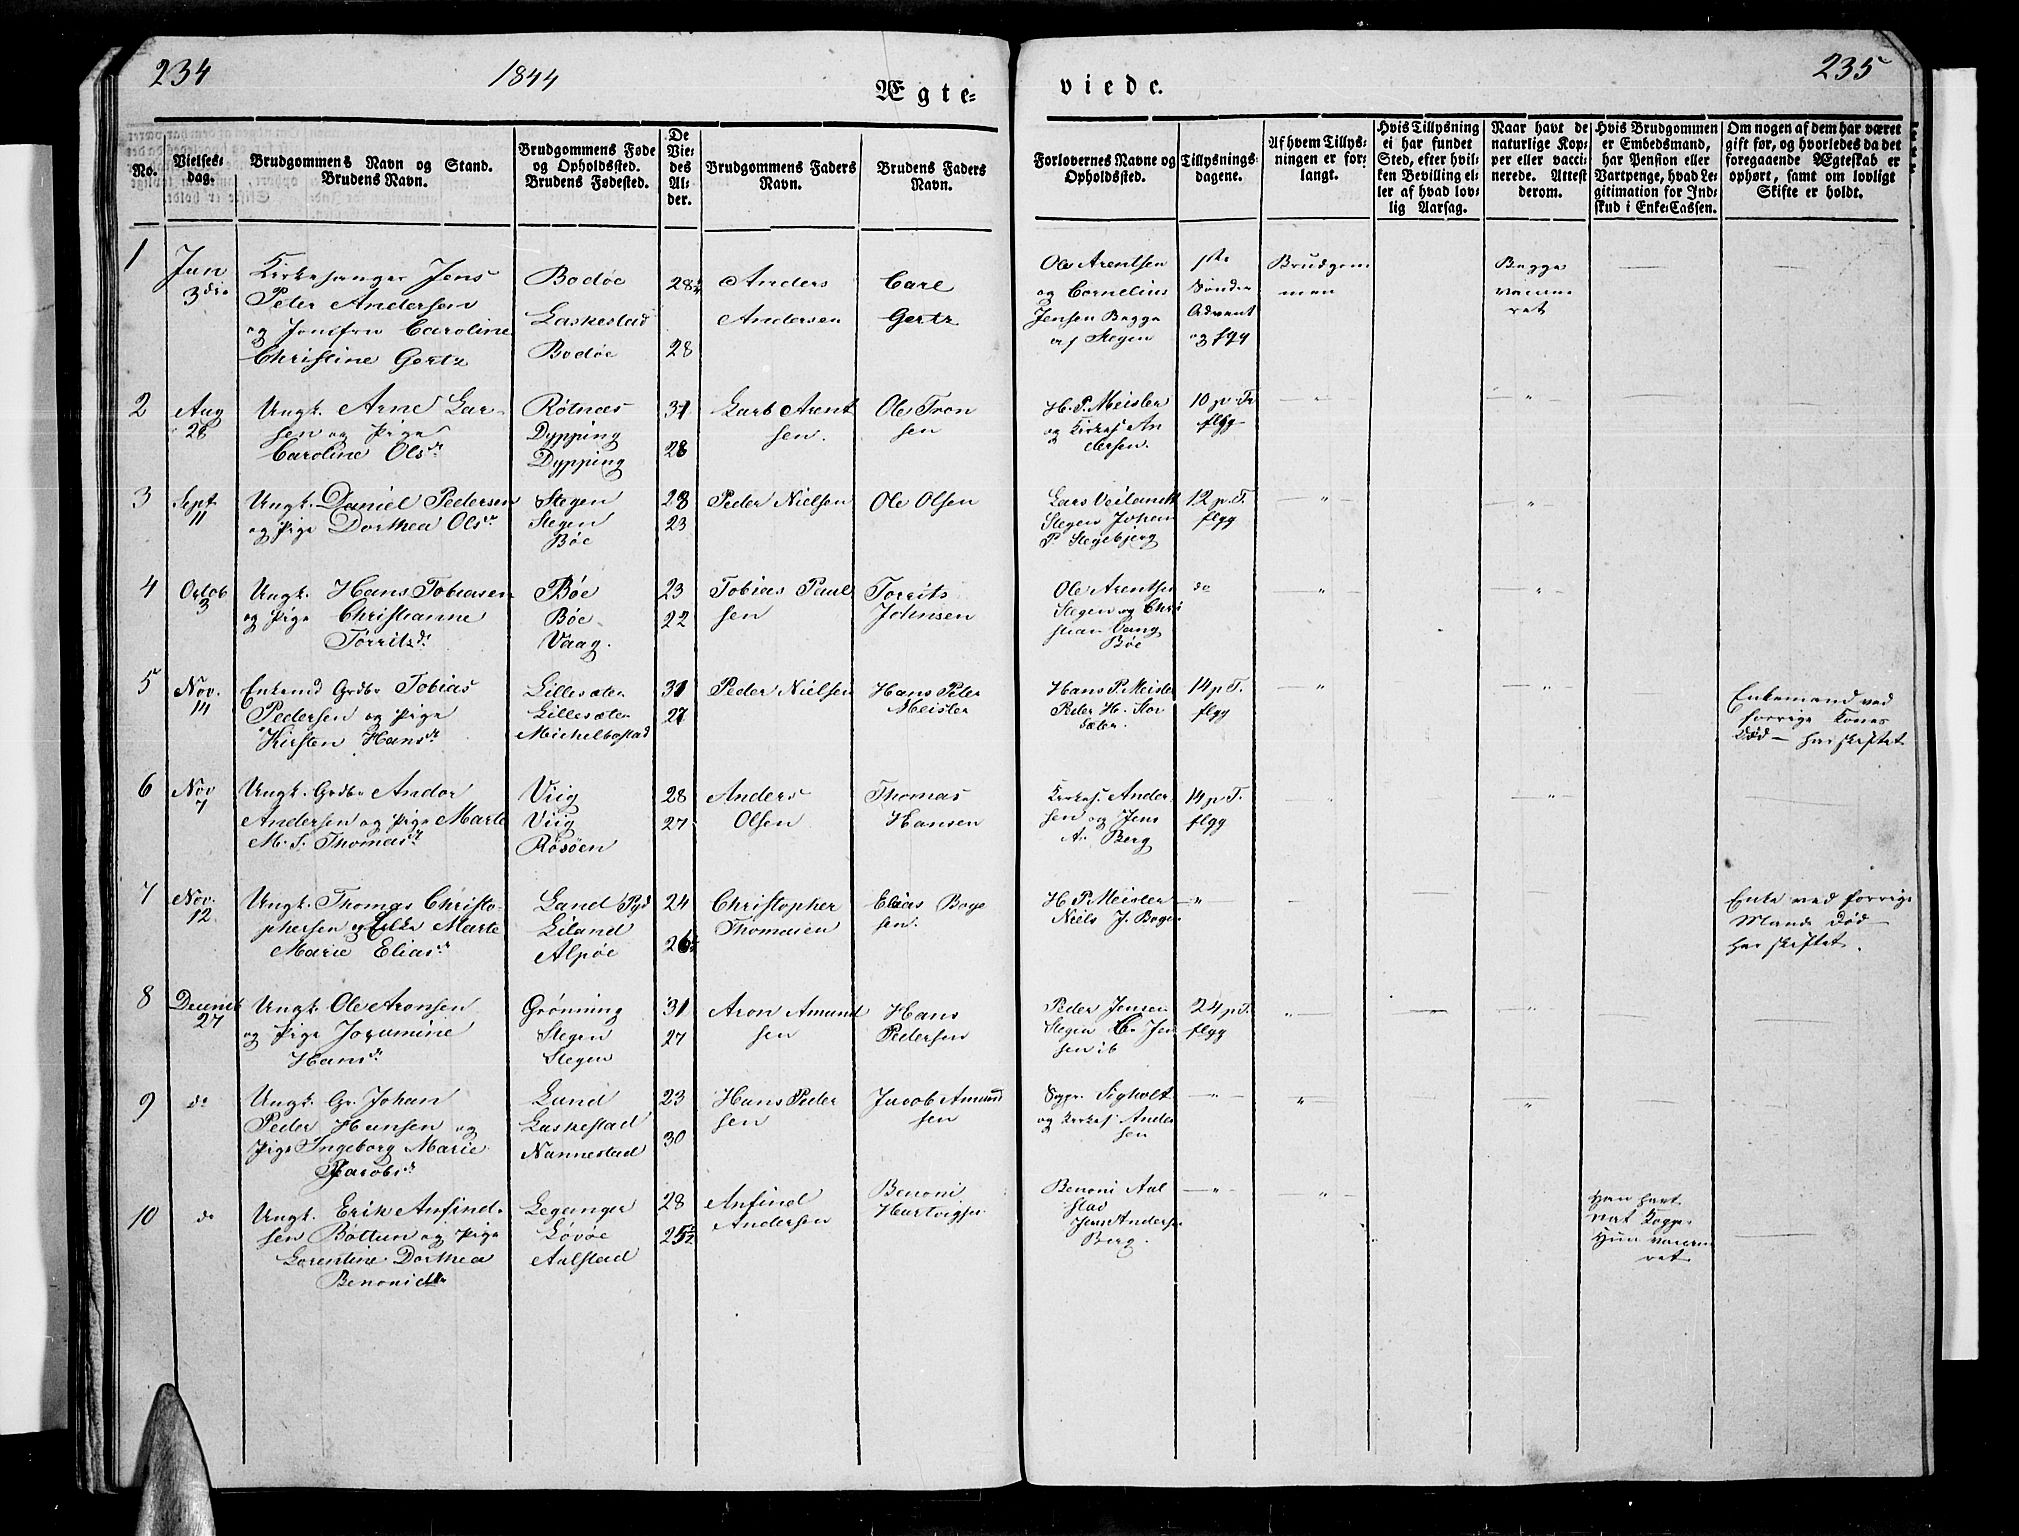 234
1844
Ægte-
viede.
235
No.
Vielses-
dag.
Brudgommens Navn og Stand.
Brudens Navn.
Brudgommens Føde
og Opholdssted.
Brudens Fødested.
De
Vie-
des
Al-
der.
Brudgommens Faders
Navn.
Brudens Faders
Navn.
Forlovernes Navne og
Opholdssted.
Tillysnings-
dagene.
Af hvem Tillys-
ningen er for-
langt.
Hvis Tillysning
ei har fundet
Sted, efter hvil-
ken Bevilling el-
ler af hvad lov-
lig Aarsag.
Naar havt de
naturlige Kop-
per eller vacci-
nerede. Attest
derom.
Hvis Brudgommen
er Embedsmand,
har Pension eller
Vartpenge, hvad Le-
gitimation for Ind-
skud i Enke-Cassen.
Om nogen af dem har været
gift før, og hvorledes da det
foregaaende Ægteskab er
ophørt, samt om lovligt
Skifte er holdt.
1
Jan
3die
Kirkesanger Jens
Peter Andersen
og Jomfru Caroline
Christine Gertz
Bodøe
Laskestad
Bodøe
28
28
Anders
Andersen
Carl
Gertz
Ole Arentsen
og Cornelius
Jensen Bagge
af Stegen
1ste
Sønd
Advent
og flgg
Brudgom
men
Begge
vaccine
ret
2
Aug
28
Ungk. Arne Lar-
sen og Pige
Caroline Olsdr
Rotnæs
Dypping
Dypping
31
28
Lars Arent
sen.
Ole Tron
sen
H. P. Meisler
og Kirkes. An
dersen.
10 p. Tr
flgg
3
Sept.
11
Ungk. Daniel Pedersen
og Pige Dorthea Olsdr
Stegen
Stegen
Bøe
28
23
Peder Nielsen
Ole Olsen
Lars Veilandt
Stegen Johan
P. Stegebjerg
12 p. T.
flgg
4
Octob
3
Ungk. Hans Tobiasen
og Pige Christianne
Torritsdr
Bøe
Bøe
Vaag.
23
22
Tobias Paul
sen
Torrits
Johnsen
Ole Arentsen
Stegen og Chri
stian Vang
Bøe
do
5
Nov.
14
Enkemd Grdbr Tobias
Pedersen og Pige
Kirsten Hansdr
Lillesæter
Lillesæter
Michelbostad
31
27
Peder Nielsen
Hans Peter
Meisler
Hans P. Meisler
Peder H. Stor
Sæter.
14 p T.
flgg
Enkemand ved
forrige Kones
Død – har skiftet
6
Nov
7
Ungk. Grdbr Andor
Andersen og Pige Marte
M. S. Thomasdr
Viig
Viig
Røsøen
28
27
Anders
Olsen
Thomas
Hansen
Kirkes. Ander-
sen og Jens
A. Berg
14 p. T.
flgg
7
Nov.
12
Ungk. Thomas Christo-
phersen og Enke Marte
Marie Eliasdr
Land
Liland
Alpøe
24
26
Christopher
Thomasen
Elias Boge
sen.
H P. Meisler
Niels J. Bogen
Enke ved forrige
Mands Død
har skiftet.
8
Decemb
27
Ungk. Ole Aronsen
og Pige Joramine
Hansdr
Grønning
Stegen
Stegen
31
27
Aron Amund
sen
Hans
Pedersen
Peder Jensen
Stegen C. Jen
sen ib
24 p T.
flgg
9
do
Ungk. Gr. Johan
Peder Hansen og
Pige Ingeborg Marie
Jacobsdr
Lund
Laskestad
Nannestad
23
30
Hans Peder
sen
Jacob Amund
sen
Sigholt
og Kirkes. Ander
sen
10
do
Ungk. Erik Anfind-
sen Bøttun og Pige
Lorentine Dorthea
Benonidtr
Leganger
Løvøe
Aalstad
28
25½
Anfind
Andersen
Benoni
Hartvigsen
Benoni Aal
stad
Jens Anderse
Berg.
Han havt
nat Kopper
Hun vaccine
ret